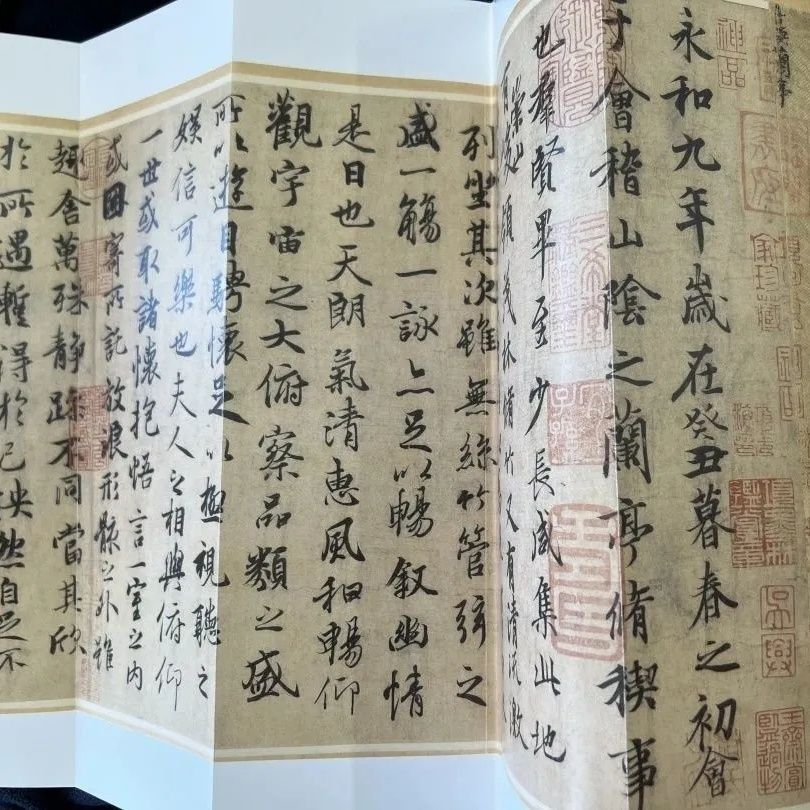 神品
永和九年歲在癸丑暮春之初會
于會稽山陰之蘭亭脩稧事
也羣賢畢至少長咸集此地
有崇山峻領茂林脩竹又有清流激
列坐其次雖無絲竹管弦之
盛一觴一詠亦足以暢叙幽情
是日也天朗氣清惠風和暢仰
觀宇宙之大俯察品類之盛
所以遊目騁懷足以極視聽之
娛信可樂也夫人之相與俯仰
一世或取諸懷抱悟言一室之內
或因寄所託放浪形骸之外雖
趣舍萬殊静躁不同當其欣
於所遇暫得於己怏然自足不